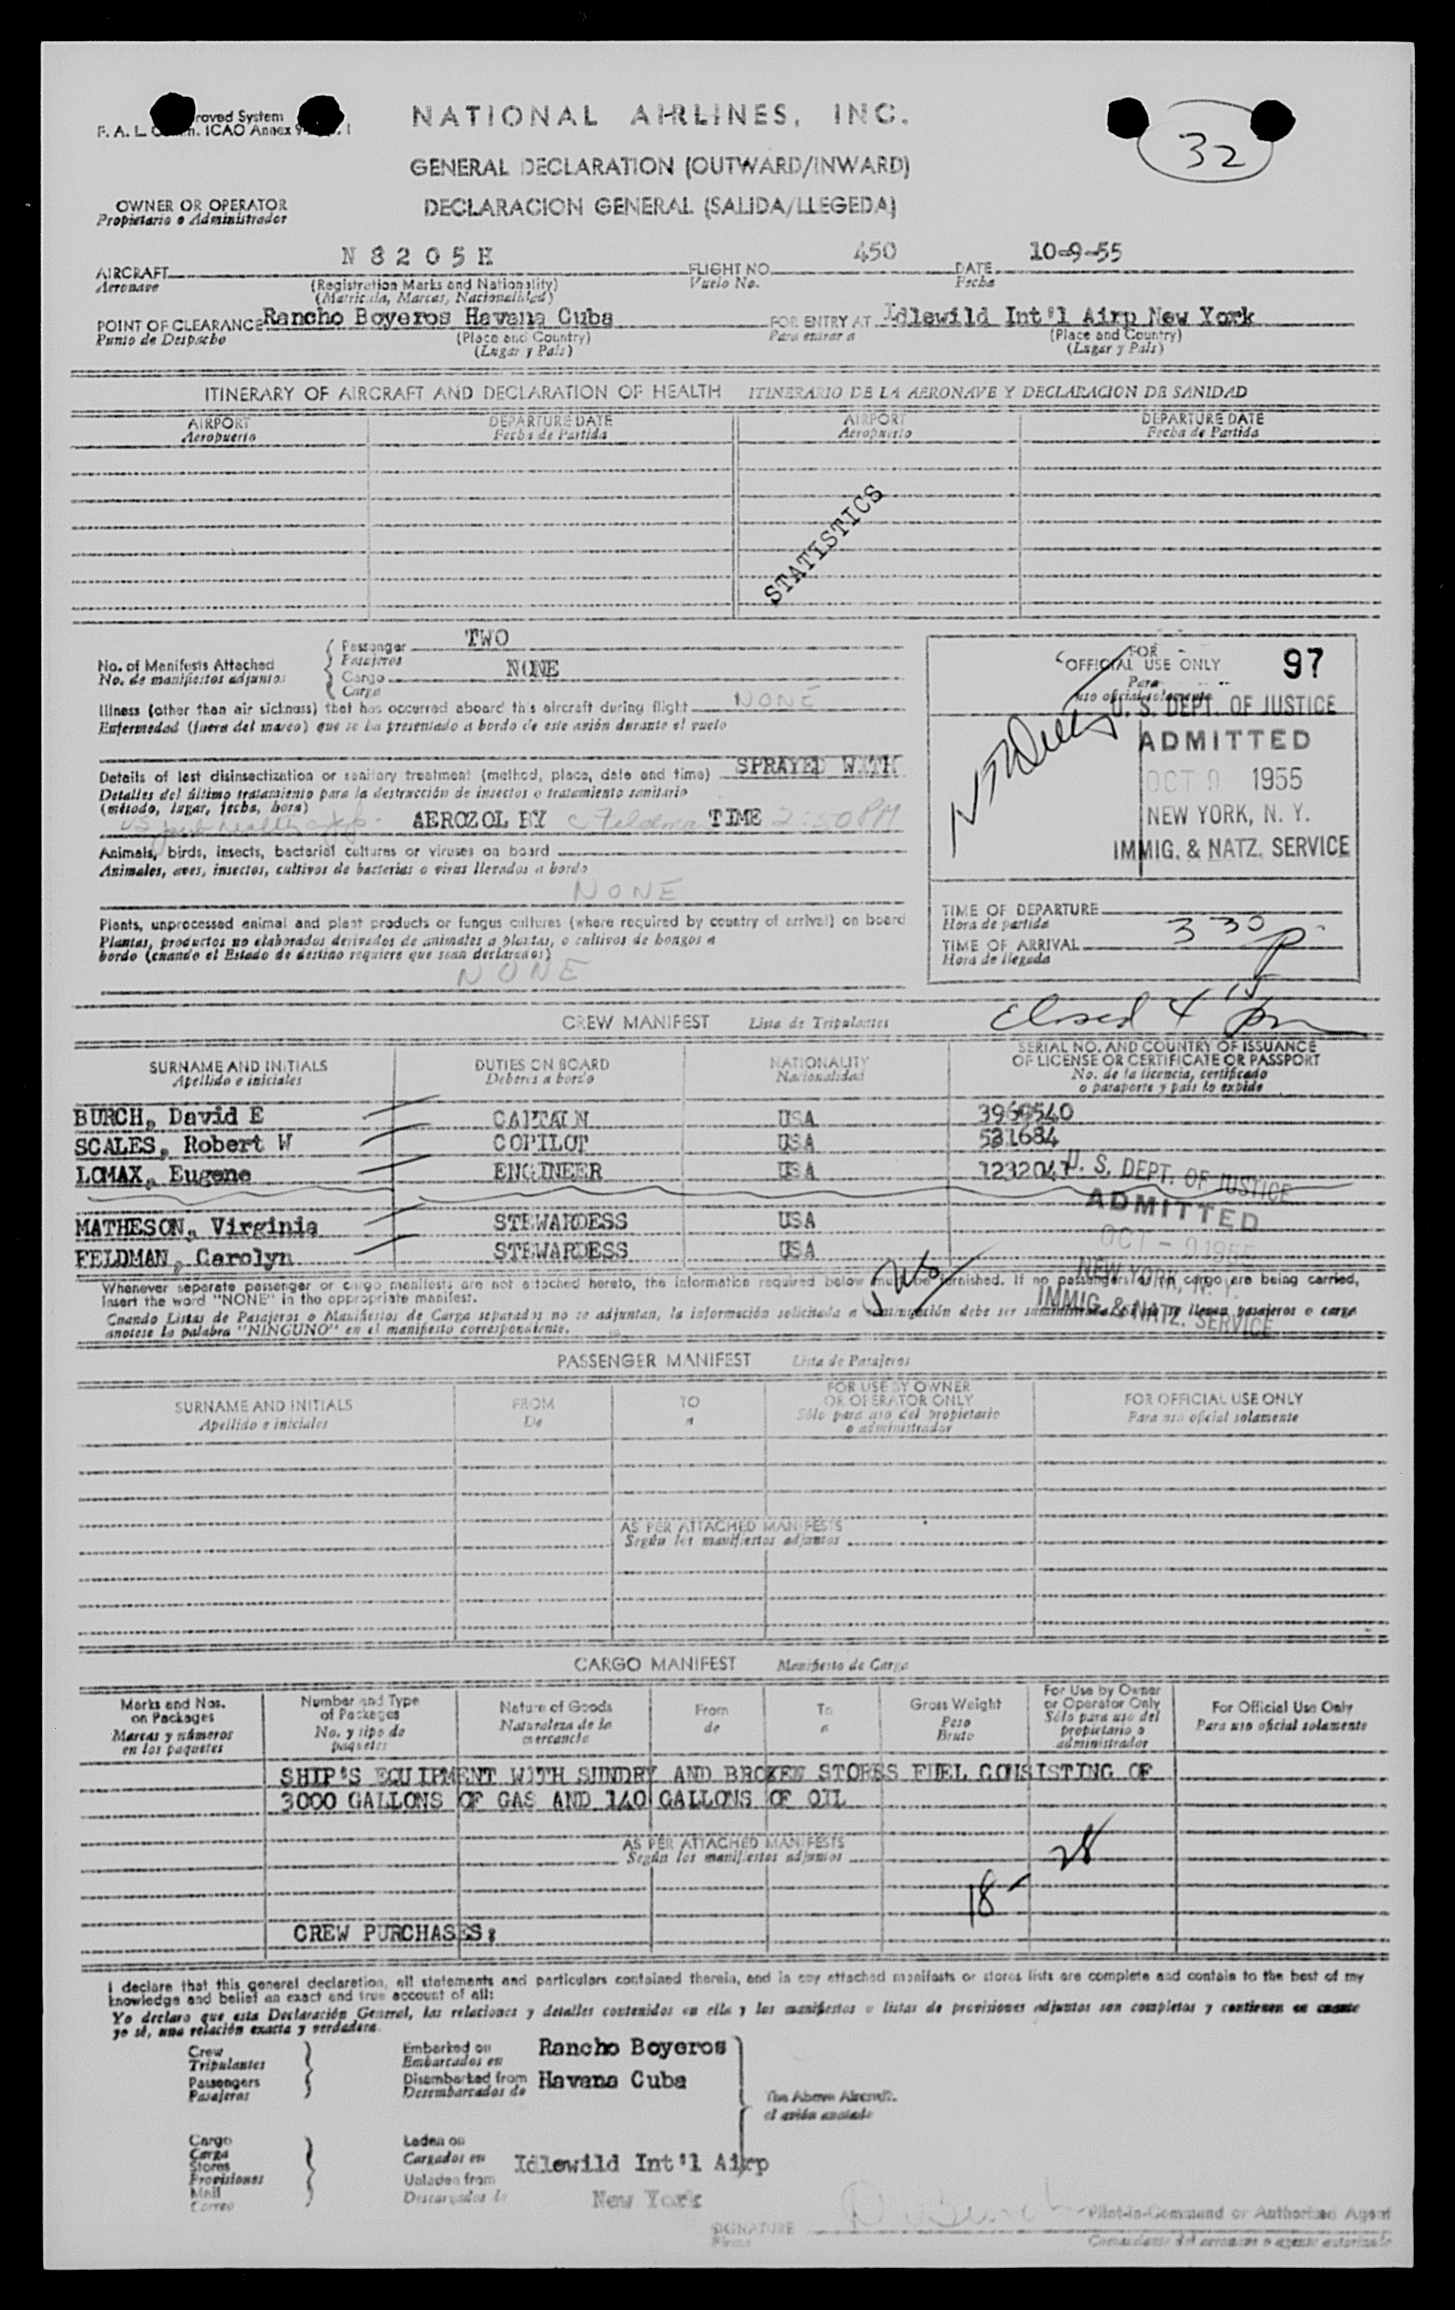 roved System
F. A. L. ICAO Annex 9
NATIONAL AIRLINES, INC.
32
GENERAL DECLARATION (OUTWARD/INWARD)
OWNER OR OPERATOR
Propietario o Administrador
DECLARACION GENERAL (SALIDA/LLEGEDA)
AIRCRAFT N 8 2 0 5 H FLIGHT NO. 450 DATE 10-9-55
Aeronave (Registration Marks and Nationality) Vuelo No. Fecha
(Matricula, Marcas, Nacionalidad)
POINT OF CLEARANCE Rancho Boyeros Havana Cuba FOR ENTRY AT Idlewild Int'l Airp New York
Punto de Despacho (Place and Country) Para entrar a (Place and Country)
(Lugar y País) (Lugar y País)
ITINERARY OF AIRCRAFT AND DECLARATION OF HEALTH ITINERARIO DE LA AERONAVE Y DECLARACION DE SANIDAD
AIRPORT DEPARTURE DATE AIRPORT DEPARTURE DATE
Aeropuerto Fecha de Partida Aeropuerto Fecha de Partida
STATISTICS
No. of Manifests Attached Passenger TWO
No. de manifiestos adjuntos Pasajeros
Cargo NONE
Carga
Illness (other than air sickness) that has occurred aboard this aircraft during flight NONE
Enfermedad (fuera del mareo) que se ha presentado a bordo de este avión durante el vuelo
Details of last disinsectization or sanitary treatment (method, place, date and time) SPRAYED WITH
Detalles del último tratamiento para la destrucción de insectos o tratamiento sanitario
(método, lugar, fecha, hora)
AEROZOL BY C Feldman TIME 2:50 PM
Animals, birds, insects, bacterial cultures or viruses on board
Animales, aves, insectos, cultivos de bacterias o virus llevados a bordo
NONE
Plants, unprocessed animal and plant products or fungus cultures (where required by country of arrival) on board
Plantas, productos no elaborados derivados de animales a plantas, o cultivos de hongos a
bordo (cuando el Estado de destino requiere que sean declarados)
NONE
FOR
OFFICIAL USE ONLY 97
Para
uso oficial solamente
U. S. DEPT. OF JUSTICE
ADMITTED
OCT 9 1955
NEW YORK, N. Y.
IMMIG. & NATZ. SERVICE
TIME OF DEPARTURE
Hora de partida
TIME OF ARRIVAL 3 30 p
Hora de llegada
Closed 4 15 pm
CREW MANIFEST Lista de Tripulantes
SURNAME AND INITIALS DUTIES ON BOARD NATIONALITY SERIAL NO. AND COUNTRY OF ISSUANCE
OF LICENSE OR CERTIFICATE OR PASSPORT
Apellido e iniciales Deberes a bordo Nacionalidad No. de la licencia, certificado
o pasaporte y país lo expide
BURCH, David E CAPTAIN USA
SCALES, Robert W COPILOT USA
LOMAX, Eugene ENGINEER USA 1232047
MATHESON, Virginia STEWARDESS USA
FELDMAN, Carolyn STEWARDESS USA
U. S. DEPT. OF JUSTICE
ADMITTED
OCT - 9 1955
NEW YORK, N. Y.
IMMIG. & NATZ. SERVICE
Whenever separate passenger or cargo manifests are not attached hereto, the information required below must be furnished. If no passengers or no cargo are being carried,
insert the word "NONE" in the appropriate manifest.
Cuando Listas de Pasajeros o Manifiestos de Carga separados no se adjuntan, la información solicitada a continuación debe ser suministrada. Si no se llevan pasajeros o carga
anotese la palabra "NINGUNO" en el manifiesto correspondiente.
PASSENGER MANIFEST Lista de Pasajeros
SURNAME AND INITIALS FROM TO FOR USE BY OWNER
OR OPERATOR ONLY FOR OFFICIAL USE ONLY
Apellido e iniciales De a Sólo para uso del propietario
o administrador Para uso oficial solamente
AS PER ATTACHED MANIFESTS
Según los manifiestos adjuntos
CARGO MANIFEST Manifiesto de Carga
Marks and Nos.
on Packages
Marcas y números
en los paquetes
Number and Type
of Packages
No. y tipo de
paquetes
Nature of Goods
Naturaleza de la
mercancía
From
de
To
a
Gross Weight
Peso
Bruto
For Use by Owner
or Operator Only
Sólo para uso del
propietario o
administrador
For Official Use Only
Para uso oficial solamente
SHIP'S EQUIPMENT WITH SUNDRY AND BROKEN STORES FUEL CONSISTING OF
3000 GALLONS OF GAS AND 140 GALLONS OF OIL
AS PER ATTACHED MANIFESTS
Según los manifiestos adjuntos
28
18-
CREW PURCHASES:
I declare that this general declaration, all statements and particulars contained therein, and in any attached manifests or stores lists are complete and contain to the best of my
knowledge and belief an exact and true account of all:
Yo declaro que esta Declaración General, las relaciones y detalles contenidos en ella y los manifiestos o listas de provisiones adjuntos son completos y contienen en cuanto
yo sé, una relación exacta y verdadera.
Crew
Tripulantes
Passengers
Pasajeros
Embarked on Rancho Boyeros
Embarcados en
Disembarked from Havana Cuba
Desembarcados de
The Above Aircraft.
el avión anotado
Cargo
Carga
Stores
Provisiones
Mail
Correo
Laden on
Cargados en Idlewild Int'l Airp
Unladen from
Descargados de New York
SIGNATURE
Firma
Pilot-in-Command or Authorized Agent
Comandante del aeronave o agente autorizado